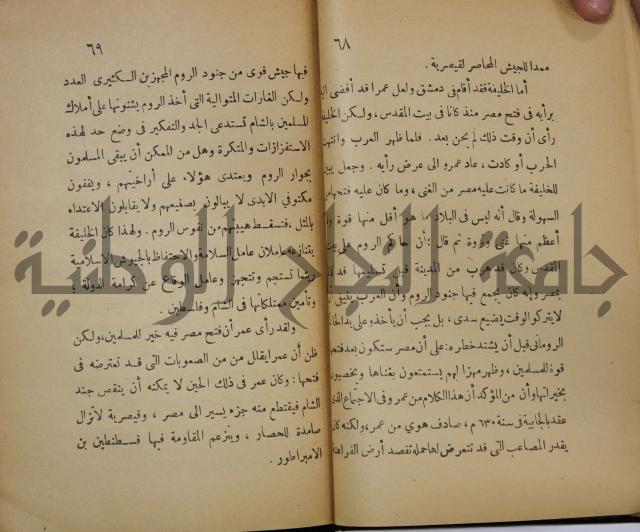 ٦٨
ممدا للجيش المحاصر لقيصرية .
أما الخليفة فقد أقام فى دمشق ولعل عمرا قد أفضى
برأيه فى فتح مصر منذ كانا فى بيت المقدس، ولكن
رأى أن وقت ذلك لم يحن بعد . فلما ظهر العرب
الحرب أو كادت، عاد عمرو الى عرض رأيه . وجعل
للخليفة ما كانت عليه مصر من الغنى، وما كان عليه فتحها من
السهولة وقال أنه ليس فى البلاد ما هو أقل منها قوة ولا
أعظم منها غنى وثروة ثم قال : أن حاكم الروم على بيت
المقدس وكان قد هرب من المدينة قبل تسليمها قد
بمصر وإنه كان يجمع فيها جنود الروم وأن العرب
لا يتركوا الوقت يضيع سدى ، بل يجب أن يأخذوا على يد
الرومانى قبل أن يشتد خطره : على أن مصر ستكون بعد فتحها
قوة للمسلمين ، وظهر مهزا لهم يستمتعون بغناها
بخيراتها وأن من المؤكد أن هذا الكلام من عمر وفى الاجتماع الذى
عقد بالجابية فى سنة ٦٣٠ م ، صادف هوي من عمر، ولكنه كان
يقدر المصاعب التى قد تتعرض لها حملة تقصد أرض الفراعنة
٦٩
فيها جيش قوى من جنود الروم المجهزين الكثيرى العدد
ولكن الغارات المتوالية التى أخذ الروم يشنونها على أملاك
المسلمين بالشام تستدعى الجد والتفكير فى وضع حد لهذه
الاستفزازات والمتكرة وهل من الممكن أن يبقى المسلمون
بجوار الروم ويعتدى هؤلاء على أراضيهم ، ويقفون
مكتوفى الايدى لا يبالون بصفيعهم ولا يقابلون الاعتداء
بالمثل ، فتسقط هيبتهم من نفوس الروم . ولهذا كان الخليفة
يتنازعه عاملان عامل السلامة والاحتفاظ بالجيوش الاسلامية
ريثما تستجم وتتجهز وعامل الدفاع عن كرامة الدولة ،
وتأمين ممتلكاتها فى الشام وفلسطين .
ولقد رأى عمر أن فتح مصر فيه خير للمسلمين، ولكن
ظن أن عمر ايقلل من من الصعوبات التى قد تعترضه فى
فتحها : وكان عمر فى ذلك الحين لا يمكنه أن ينقص جند
الشام فيقتطع منه جزء يسير الى مصر ، وقيصرية لا تزال
صامدة للحصار ، ويتزعم المقاومة فيها قسطنطين بن
الامبراطور .
جامعة النجاح الوطنية